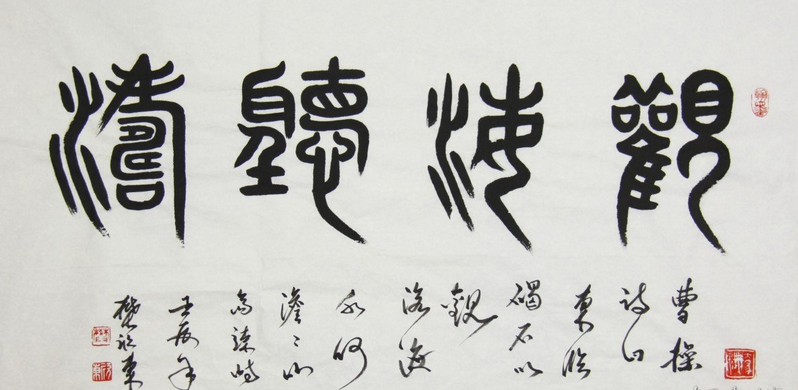 觀海聽濤
曹操
詩曰
東臨
碣石以
觀
滄海
水何
澹〻山
島竦峙
壬辰年